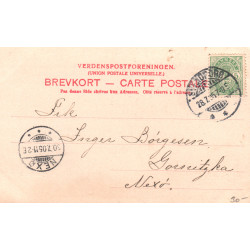 VERDENSPOSTFORENINGEN.
(UNION POSTALE UNIVERSELLE.)
BREVKORT – CARTE POSTALE
Paa denne Side skrives kun Adressen. Côté réservé à l'adresse
Frk
Inger Børgesen
Nexø.
NEXØ
30.7.05 11-2 E
20-